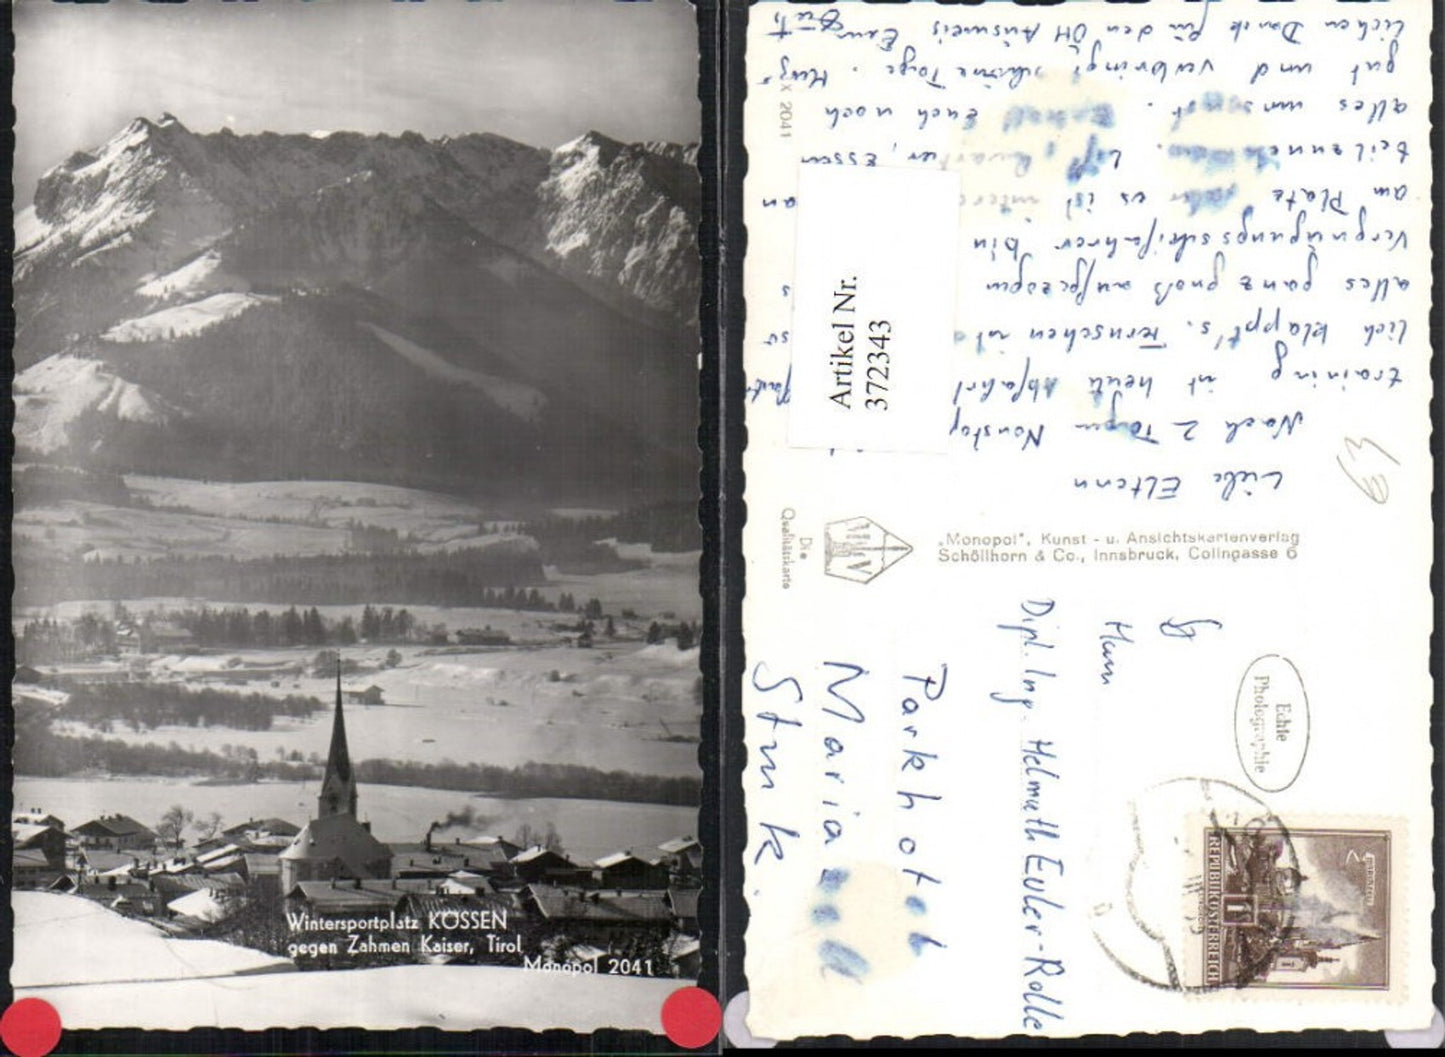 Wintersportplatz KÖSSEN
gegen Zahmen Kaiser, Tirol
Monopol 2041
Liebe Eltern
Nach 2 Tagen Nonstop
training ist heute Abfahrt
lich klappt's. Fernsehen ist so
alles ganz groß aufgezogen
Vergnügungsschifahrer bin
am Platz es ist an
teilzunehmen. Quartier, Essen
alles umsonst. Euch noch
gut und verbringt schöne Tage. Herz-
lichen Dank für den ÖH Ausweis
X 2041
Artikel Nr.
372343
Die
Qualitätskarte
„Monopol", Kunst - u. Ansichtskartenverlag
Schöllhorn & Co., Innsbruck, Colingasse 6
Echte
Photographie
Herrn
Dipl. Ing. Helmuth Euler-Rolle
Parkhotel
Mariazell
Stmk.
REPUBLIK ÖSTERREICH
1